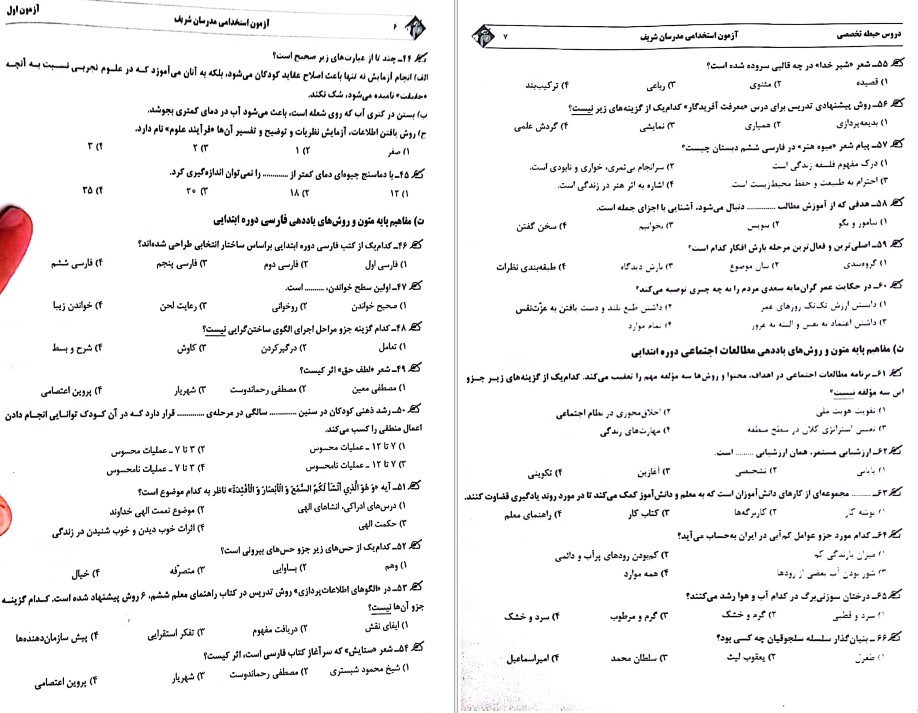 آزمون اول
آزمون استخدامی مدرسان شریف
۶
۴۴ـ چند تا از عبارت‌های زیر صحیح است؟
الف) انجام آزمایش نه تنها باعث اصلاح عقاید کودکان می‌شود، بلکه به آنان می‌آموزد که در علوم تجربی نسبت به آنچه
«حقیقت» نامیده می‌شود، شک نکنند.
ب) بستن در کتری آب که روی شعله است، باعث می‌شود آب در دمای کمتری بجوشد.
ج) روش یافتن اطلاعات، آزمایش نظریات و توضیح و تفسیر آن‌ها «فرآیند علوم» نام دارد.
۱) صفر ۲) ۱ ۳) ۲ ۴) ۳
۴۵ـ با دماسنج جیوه‌ای دمای کمتر از ............ را نمی‌توان اندازه‌گیری کرد.
۱) ۱۲ ۲) ۱۸ ۳) ۳۰ ۴) ۳۵
ت) مفاهیم پایه متون و روش‌های یاددهی فارسی دوره ابتدایی
۴۶ـ کدام‌یک از کتب فارسی دوره ابتدایی براساس ساختار انتخابی طراحی شده‌اند؟
۱) فارسی اول ۲) فارسی دوم ۳) فارسی پنجم ۴) فارسی ششم
۴۷ـ اولین سطح خواندن، .......... است.
۱) صحیح خواندن ۲) روخوانی ۳) رعایت لحن ۴) خواندن زیبا
۴۸ـ کدام گزینه جزو مراحل اجرای الگوی ساختن‌گرایی نیست؟
۱) تعامل ۲) درگیرکردن ۳) کاوش ۴) شرح و بسط
۴۹ـ شعر «لطف حق» اثر کیست؟
۱) مصطفی معین ۲) مصطفی رحماندوست ۳) شهریار ۴) پروین اعتصامی
۵۰ـ رشد ذهنی کودکان در سنین ............ سالگی در مرحله‌ی ............ قرار دارد که در آن کودک توانایی انجام دادن
اعمال منطقی را کسب می‌کند.
۱) ۷ تا ۱۲ ـ عملیات محسوس ۲) ۳ تا ۷ ـ عملیات محسوس
۳) ۷ تا ۱۲ ـ عملیات نامحسوس ۴) ۳ تا ۷ ـ عملیات نامحسوس
۵۱ـ آیه «وَ هُوَ الَّذِي أَنْشَأَ لَكُمُ السَّمْعَ وَ الْأَبْصَارَ وَ الْأَفْئِدَةَ» ناظر به کدام موضوع است؟
۱) درس‌های ادراکی، انشاهای الهی ۲) موضوع نعمت الهی خداوند
۳) حکمت الهی ۴) اثرات خوب دیدن و خوب شنیدن در زندگی
۵۲ـ کدام‌یک از حس‌های زیر جزو حس‌های بیرونی است؟
۱) وهم ۲) بساوایی ۳) متصرّفه ۴) خیال
۵۳ـ در «الگوهای اطلاعات‌پردازی» روش تدریس در کتاب راهنمای معلم ششم، ۶ روش پیشنهاد شده است. کدام گزینه
جزو آن‌ها نیست؟
۱) ایفای نقش ۲) دریافت مفهوم ۳) تفکر استقرایی ۴) پیش سازمان‌دهنده‌ها
۵۴ـ شعر «ستایش» که سرآغاز کتاب فارسی است، اثر کیست؟
۱) شیخ محمود شبستری ۲) مصطفی رحماندوست ۳) شهریار ۴) پروین اعتصامی
دروس حیطه تخصصی
آزمون استخدامی مدرسان شریف
۷
۵۵ـ شعر «شیر خدا» در چه قالبی سروده شده است؟
۱) قصیده ۲) مثنوی ۳) رباعی ۴) ترکیب‌بند
۵۶ـ روش پیشنهادی تدریس برای درس «معرفت آفریدگار» کدام‌یک از گزینه‌های زیر نیست؟
۱) بدیعه‌پردازی ۲) همیاری ۳) نمایشی ۴) گردش علمی
۵۷ـ پیام شعر «میوه هنر» در فارسی ششم دبستان چیست؟
۱) درک مفهوم فلسفه زندگی است ۲) سرانجام بی‌ثمری، خواری و نابودی است.
۳) احترام به طبیعت و حفظ محیط‌زیست است. ۴) اشاره به اثر هنر در زندگی است.
۵۸ـ هدفی که از آموزش مطالب ............ دنبال می‌شود، آشنایی با اجزای جمله است.
۱) بیاموز و بگو ۲) بنویس ۳) بخوانیم ۴) سخن گفتن
۵۹ـ اصلی‌ترین و فعال‌ترین مرحله بارش افکار کدام است؟
۱) گروه‌بندی ۲) بیان موضوع ۳) بارش دیدگاه ۴) طبقه‌بندی نظرات
۶۰ـ در حکایت عمر گران‌مایه سعدی مردم را به چه چیزی توصیه می‌کند؟
۱) دانستن ارزش تک‌تک روزهای عمر ۲) داشتن طبع بلند و دست یافتن به عزّت‌نفس
۳) داشتن اعتماد به نفس و البته نه غرور ۴) تمام موارد
ث) مفاهیم پایه متون و روش‌های یاددهی مطالعات اجتماعی دوره ابتدایی
۶۱ـ برنامه مطالعات اجتماعی در اهداف، محتوا و روش‌ها سه مؤلفه مهم را تعقیب می‌کند. کدام‌یک از گزینه‌های زیر جزو
این سه مؤلفه نیست؟
۱) تقویت هویت ملی ۲) اخلاق‌محوری در نظام اجتماعی
۳) تعیین استراتژی کلان در سطح منطقه ۴) مهارت‌های زندگی
۶۲ـ ارزشیابی مستمر، همان ارزشیابی ......... است.
۱) پایانی ۲) تشخیصی ۳) آغازین ۴) تکوینی
۶۳ـ ......... مجموعه‌ای از کارهای دانش‌آموزان است که به معلم و دانش‌آموز کمک می‌کند تا در مورد روند یادگیری قضاوت کنند.
۱) پوشه کار ۲) کاربرگه‌ها ۳) کتاب کار ۴) راهنمای معلم
۶۴ـ کدام مورد جزو عوامل کم‌آبی در ایران به‌حساب می‌آید؟
۱) میزان بارندگی کم ۲) کم‌بودن رودهای پرآب و دائمی
۳) شور بودن آب بعضی از رودها ۴) همه موارد
۶۵ـ درختان سوزنی‌برگ در کدام آب و هوا رشد می‌کنند؟
۱) سرد و قطبی ۲) گرم و خشک ۳) گرم و مرطوب ۴) سرد و خشک
۶۶ـ بنیان‌گذار سلسله سلجوقیان چه کسی بود؟
۱) طغرل ۲) یعقوب لیث ۳) سلطان محمد ۴) امیراسماعیل